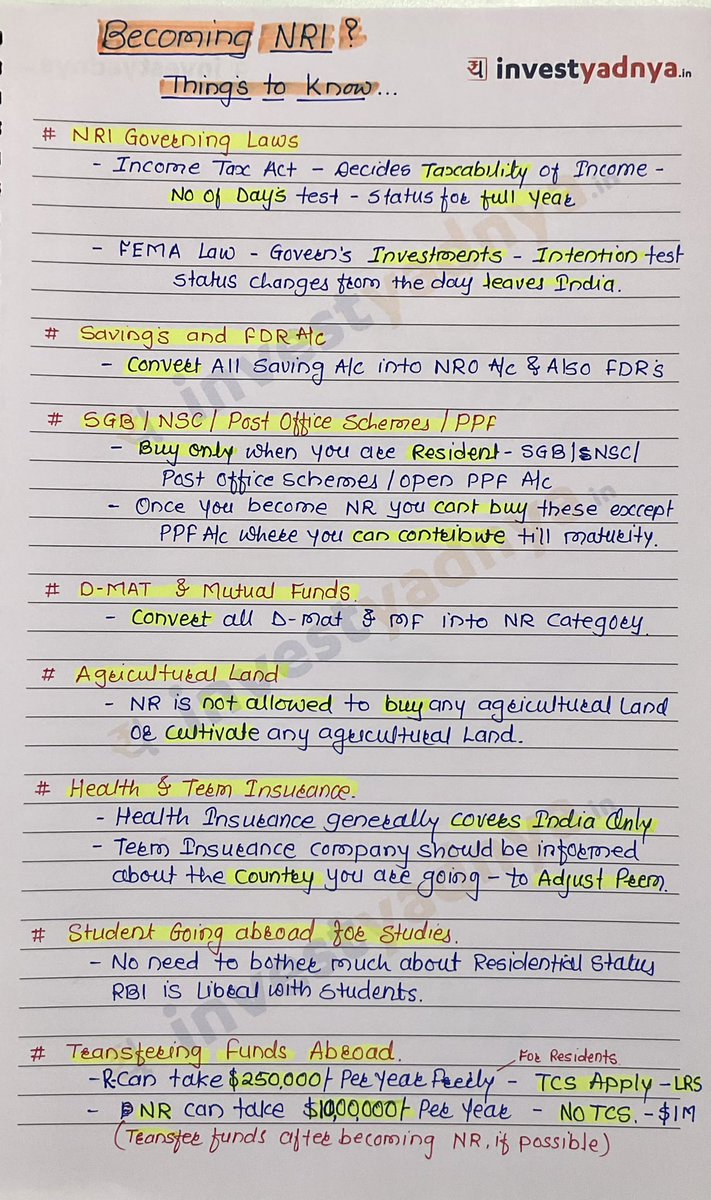 Becoming NRI?
य investyadnya.in
Thing's to Know...
# NRI Governing Laws
- Income Tax Act - Decides Taxcability of Income -
No of Day's test - Status for full Year
- FEMA Law - Govern's Investments - Intention test
Status changes from the day leaves India.
# Saving's and FDR A/c
- Convert All Saving A/c into NRO A/c & Also FDR's
# SGB/NSC/Post Office Schemes/PPF
- Buy only when you are Resident - SGB/NSC/
Post Office Schemes/open PPF A/c
- Once you become NR you cant buy these except
PPF A/c where you can contribute till maturity.
# D-MAT & Mutual Funds.
- Convert all D-mat & MF into NR Category.
# Agricultural Land
- NR is not allowed to buy any agricultural Land
or cultivate any agricultural Land.
# Health & Term Insurance.
- Health Insurance generally covers India Only
- Term Insurance company should be informed
about the country you are going - to Adjust Prem.
# Student Going abroad for Studies.
- No need to bother much about Residential Status
RBI is Liberal with Students.
# Transfering Funds Abroad.
For Residents
- R Can take $250,000/- Per Year Freely - TCS Apply - LRS
- NR can take $1000,000/- Per Year - NO TCS. - $1M
(Transfer funds after becoming NR, if possible)